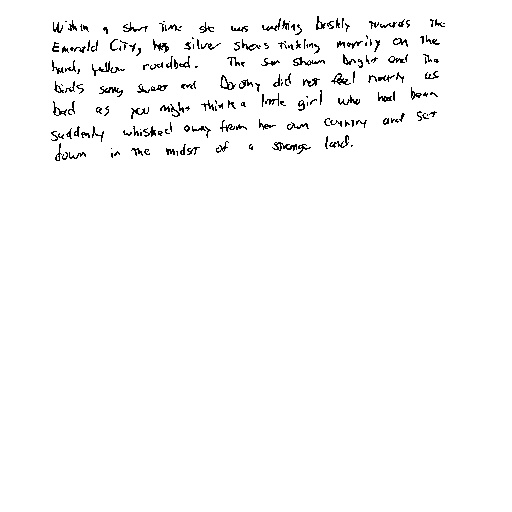 Within a short time she was walking briskly towards the
Emerald City, her silver shoes tinkling merrily on the
hard, yellow roadbed. The sun shown bright and the
birds sang sweet and Dorothy did not feel nearly as
bad as you might think a little girl who had been
suddenly whisked away from her own country and set
down in the midst of a strange land.